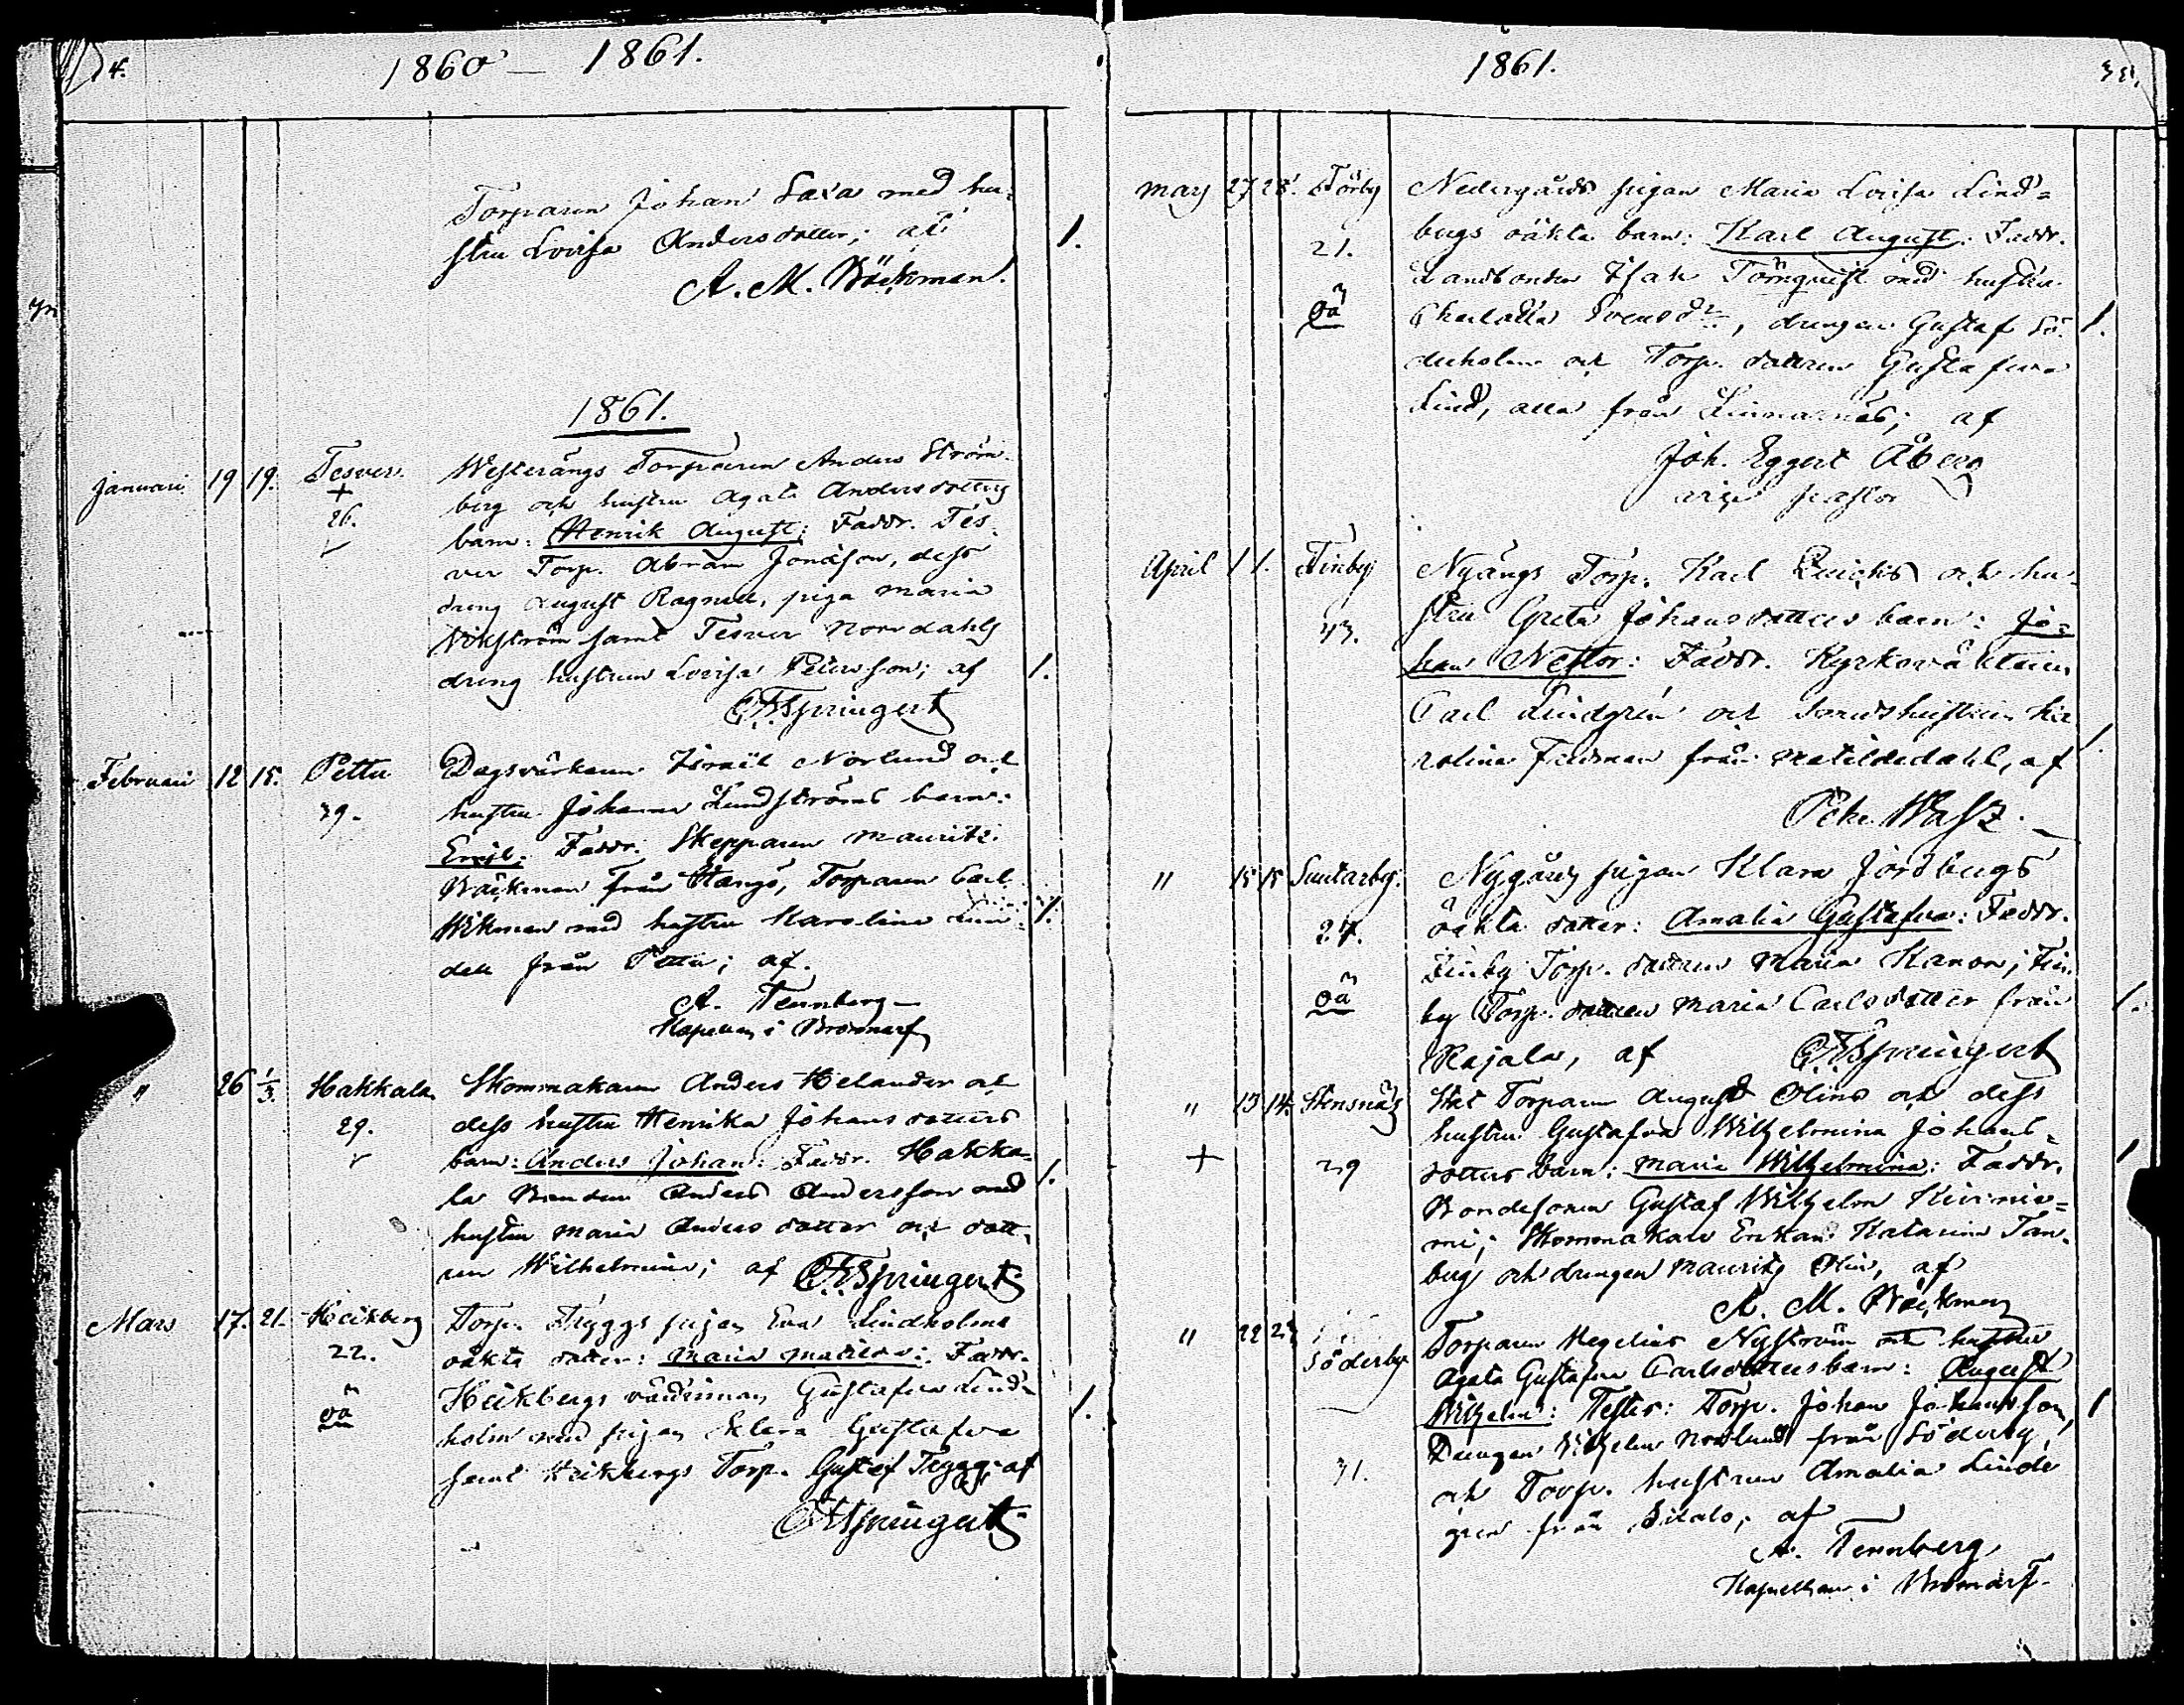 4.
1860 – 1861.
Torparen Johan Saxa med hu-
stru Lovisa Andersdotter; af
1.
A. M. Bäckman.
1861.
Januari 19 19. Tesver. Westerängs Torparen Anders Ström-
+ berg och hustru Agata Andersdotters
26. barn: Henrik August: Faddr. Tes-
ver Torp. Abram Jonasson, dess
dreng August Ragnell, piga Maria
Wikström samt Tesver Norrdahls
dreng hustrun Lovisa Petersson; af 1.
Springert
Februari 12 15. Pettu Dagsvärkaren Israel Norlund och
39. hustru Johanna Lundströms barn:
Emil: Faddr. Skepparen Mauritz
Bäckman från Hangö, Torparen Carl
Wikman med hustru Karolina Lin- 1.
dell från Pettu; af.
A. Tennberg
Kapellan i Bromarf
" 26 1/3. Hakkala Skommakaren Anders Helander och
29. dess hustru Henrika Johansdotters
barn: Anders Johan: Faddr. Hakka-
la Bonden Anders Andersson med 1.
hustru Maria Andersdotter och dott-
ren Wilhelmina; af Springert
Mars 17. 21. Heikberg Torp. Tryggs pigan Eva Lindholms
22. oäkta dotter: Maria Matilda: Faddr.
oä Heikbergs värdinnan Gustafva Lind-
holm med pigan Klara Gustafva 1.
samt Heikbergs Torp. Gustaf Trygg; af
Springert
1861.
Mars 27 28. Förby Nedergårds pigan Maria Lovisa Lind=
21. bergs oäkta barn: Karl August: Faddr.
Landbonden Isak Törnqvist med hustru
oä Charlotta Svensdr, drengen Gustaf Sö- 1.
derholm och Torp. dottren Gustafva
Lind, alla från Linnarnäs; af
Joh. Eggert Åberg
vice pastor
April 1 1. Finby Nyängs Torp. Karl och hu-
43. stru Greta Johansdotters barn: Jo=
han Nestor: Faddr. Kyrkoväktaren
Carl Lindgrén och Ka-
rolina Fridman från Matildedahl, af 1.
Petr. Wasz.
" 15 15 Suutarby. Nygårds pigan Klara Jordbergs
27. oäkta dotter: Amalia Gustafva: Faddr.
Finby Torp. dottren Maria Kanon; Fin-
oä by Torp. dottren Maria Carlsdotter från 1.
Rajala, af Springert
" 13 14. Stensnäs Stat Torparen August Olins och dess
hustru Gustafva Wilhelmina Johans=
+ 29 dotters barn: Maria Wilhelmina: Faddr. 1
Bondesonen Gustaf Wilhelm Kurinie=
mi; Skommakare Enkan Katarina Tam-
berg och drengen Mauritz Olin, af
A. M. Bäckman
" 22 Söderby Torparen Hegelius Nyström och hustru
Agata Gustafva Carlsdotters barn: August
Wilhelm: Testes: Torp. Johan Johansson, 1
Drengen Wilhelm Norlund från Söderby,
31. och Torp. hustrun Amalia Linde
gren från af
A. Tennberg
Kapellan i Bromarf